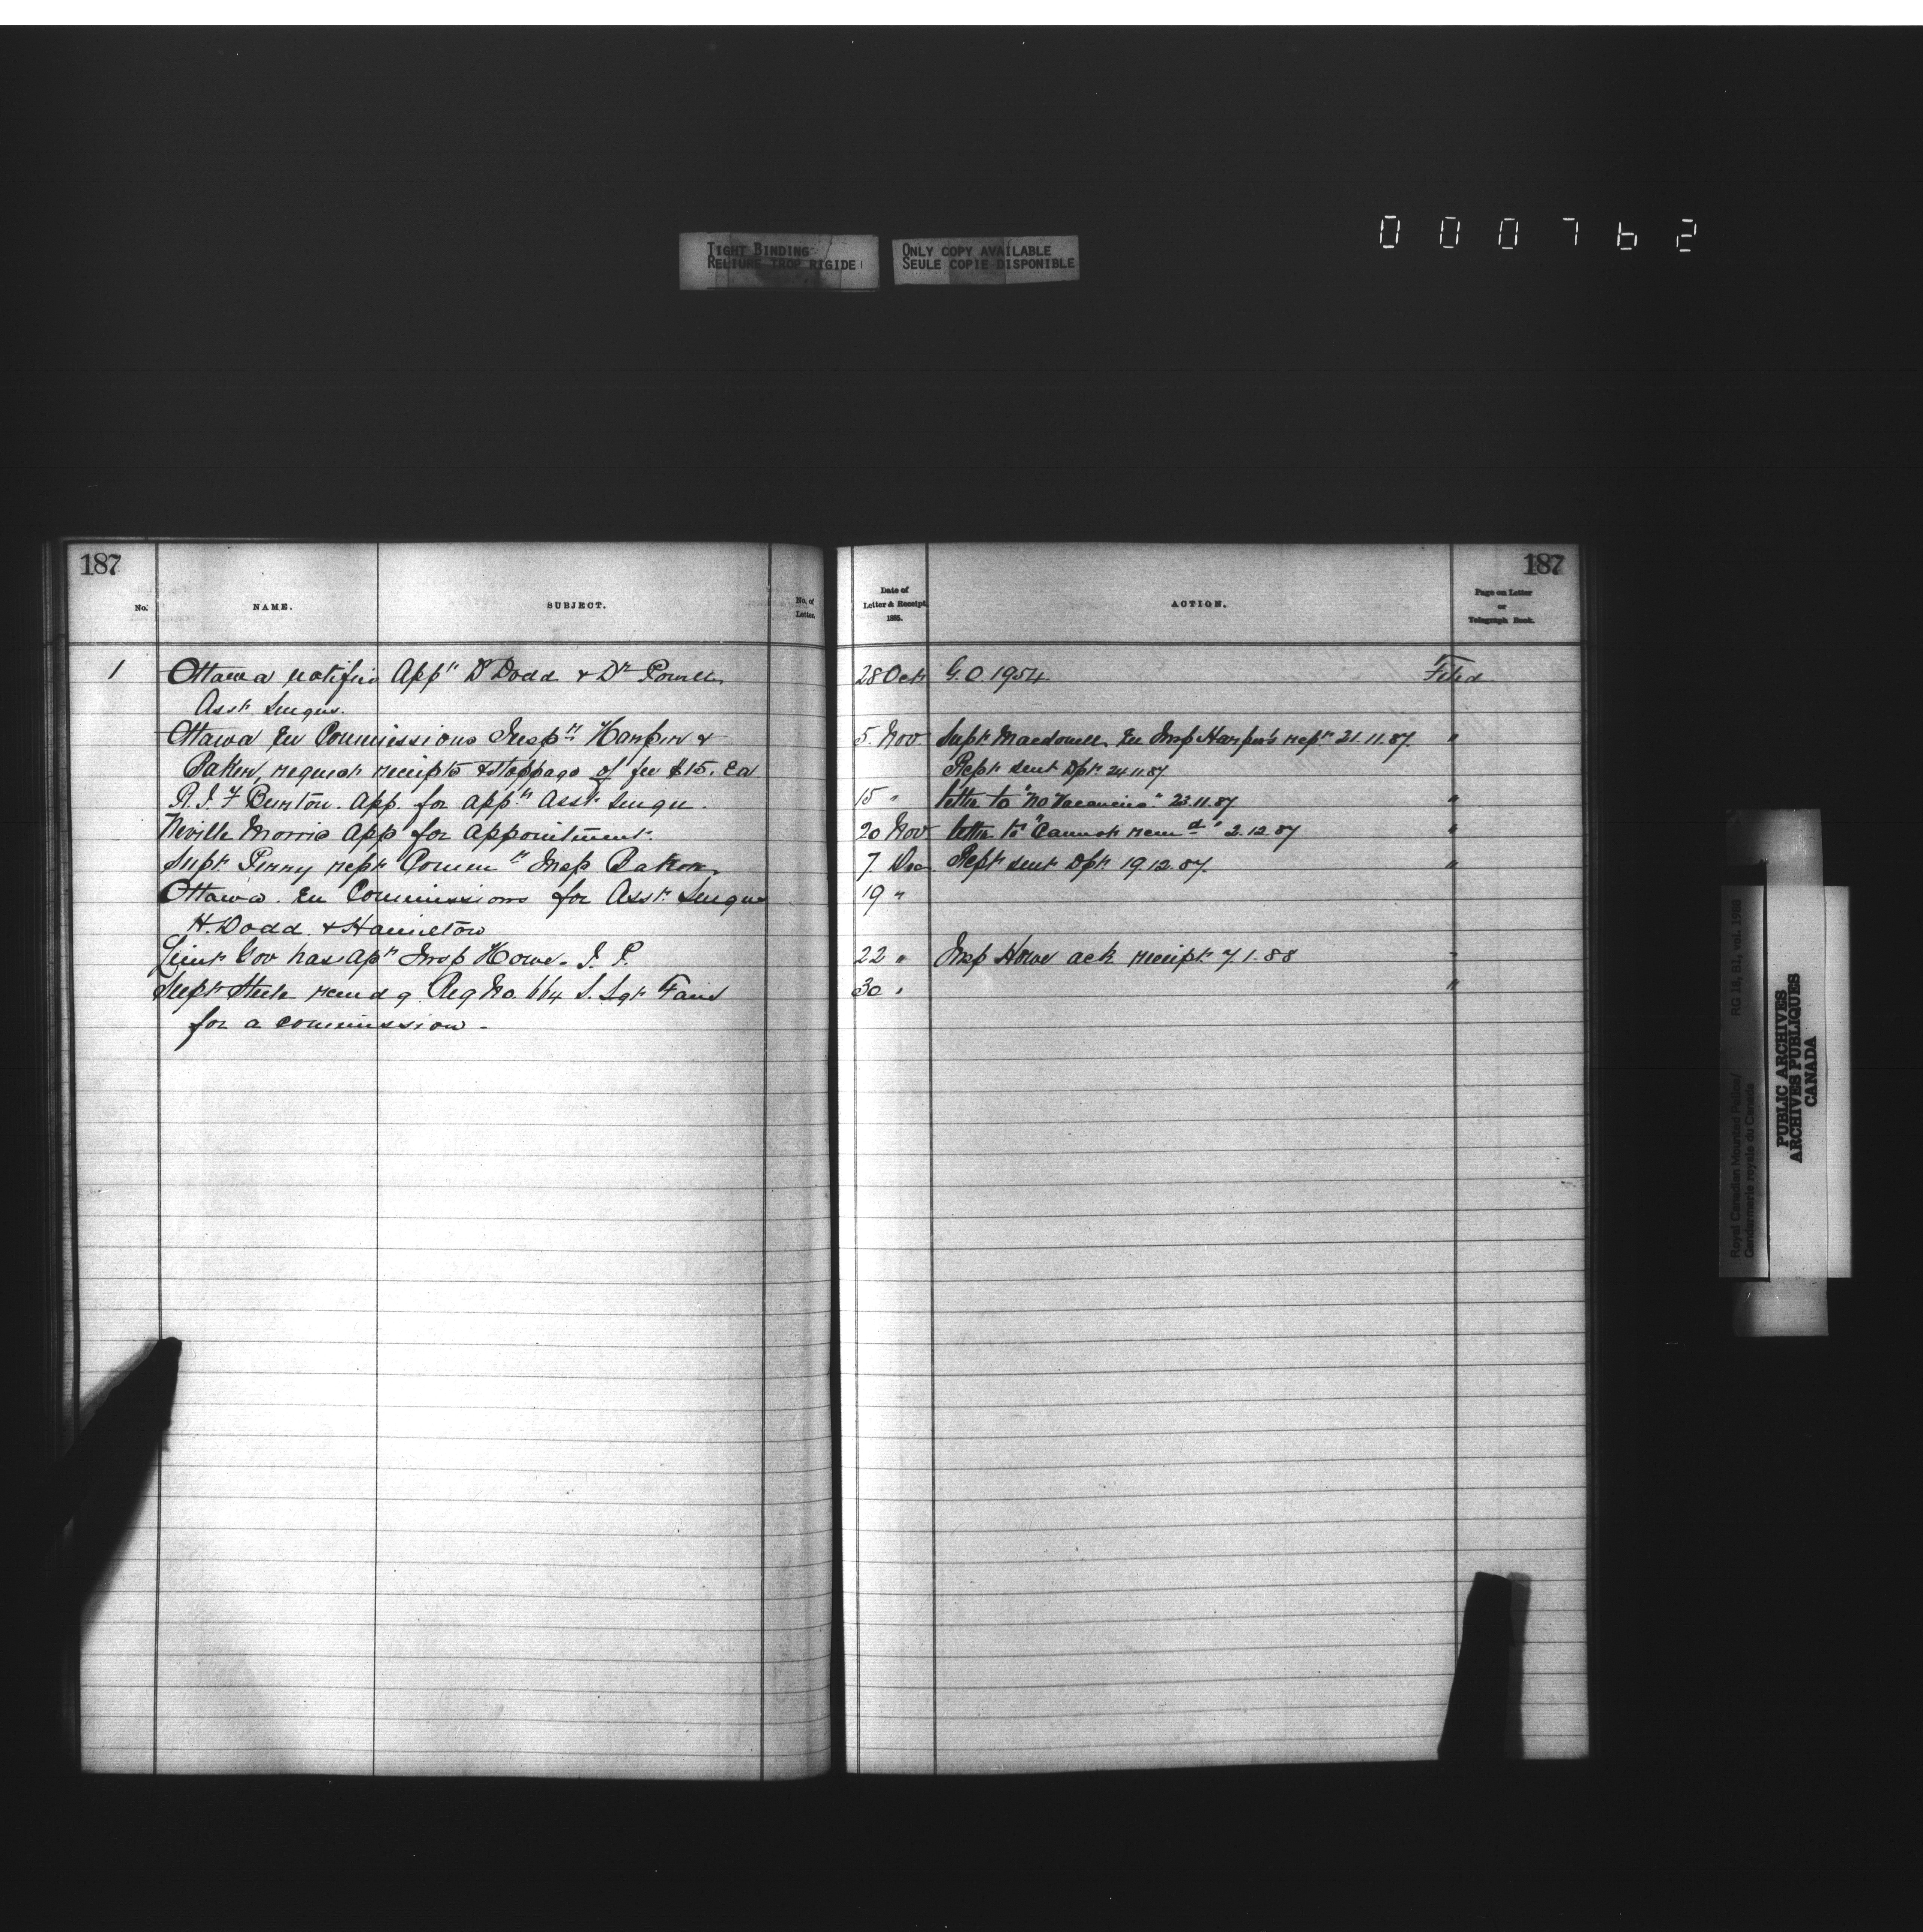 000762
TIGHT BINDING
RELIURE TROP RIGIDE
ONLY COPY AVAILABLE
SEULE COPIE DISPONIBLE
187
No.
NAME.
SUBJECT.
No. of
Letter.
1 Ottawa notifies Appt Dr Dodd & Dr Powell
Asst Surgns.
Ottawa Enc Commissions Insprs Harper &
Baker, request receipts & stoppage of fee $15. Ea
R.J.F Burton. App. for appt Asst Surgn.
Neville Morris App for appointment.
Supt Perry rept Commn Insp Baker
Ottawa. Enc Commissions for Asst Surgns
H. Dodd & Hamilton
Lieut Gov has apt Insp Howe. J. P.
Supt Steele recmdg Reg No. 664 S. Sgt
for a commission.
187
Date of
Letter & Receipt,
1885.
ACTION.
Page on Letter
or
Telegraph Book.
28 Oct G.O. 1954. Filed
5. Nov Supt Macdonell. Enc Insp Harper's rept 21.11.87. "
Rept sent Dpt. 24.11.87
15 " letter to "No Vacancies." 23.11.87 "
20 Nov. letter to "Cannot recmd" 2.12.87 "
7. Dec. Rept sent Dpt. 19.12.87. "
19 "
22 " Insp Howe ack receipt 7.1.88 "
30 " "
Royal Canadian Mounted Police/
Gendarmerie royale du Canada
RG 18, B1, vol. 1983
PUBLIC ARCHIVES
ARCHIVES PUBLIQUES
CANADA